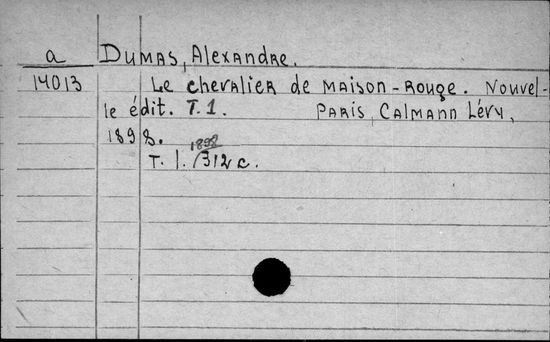 a DUMAS, Alexandre.
14013 Le chevalier de MAISON-ROUGE. Nouvel-
le édit. T.1. PARIS, CALMANN Lévy,
1898.
1898
T. 1. 312 c.